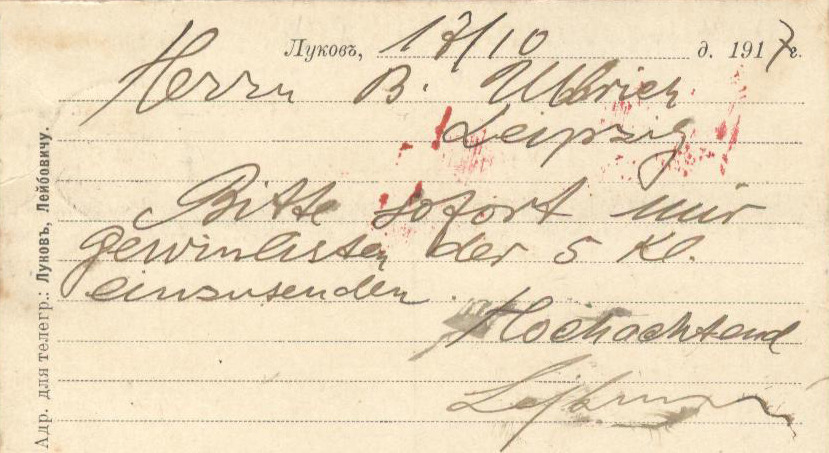 Луковъ, 17/10 д. 1917 г.
Herrn B. Ulbrich
Leipzig
Bitte sofort mir
gewinlisten der 5 Kl.
einzusenden.
Hochachtend
Адр. для телегр.: Луковъ, Лейбовичу.